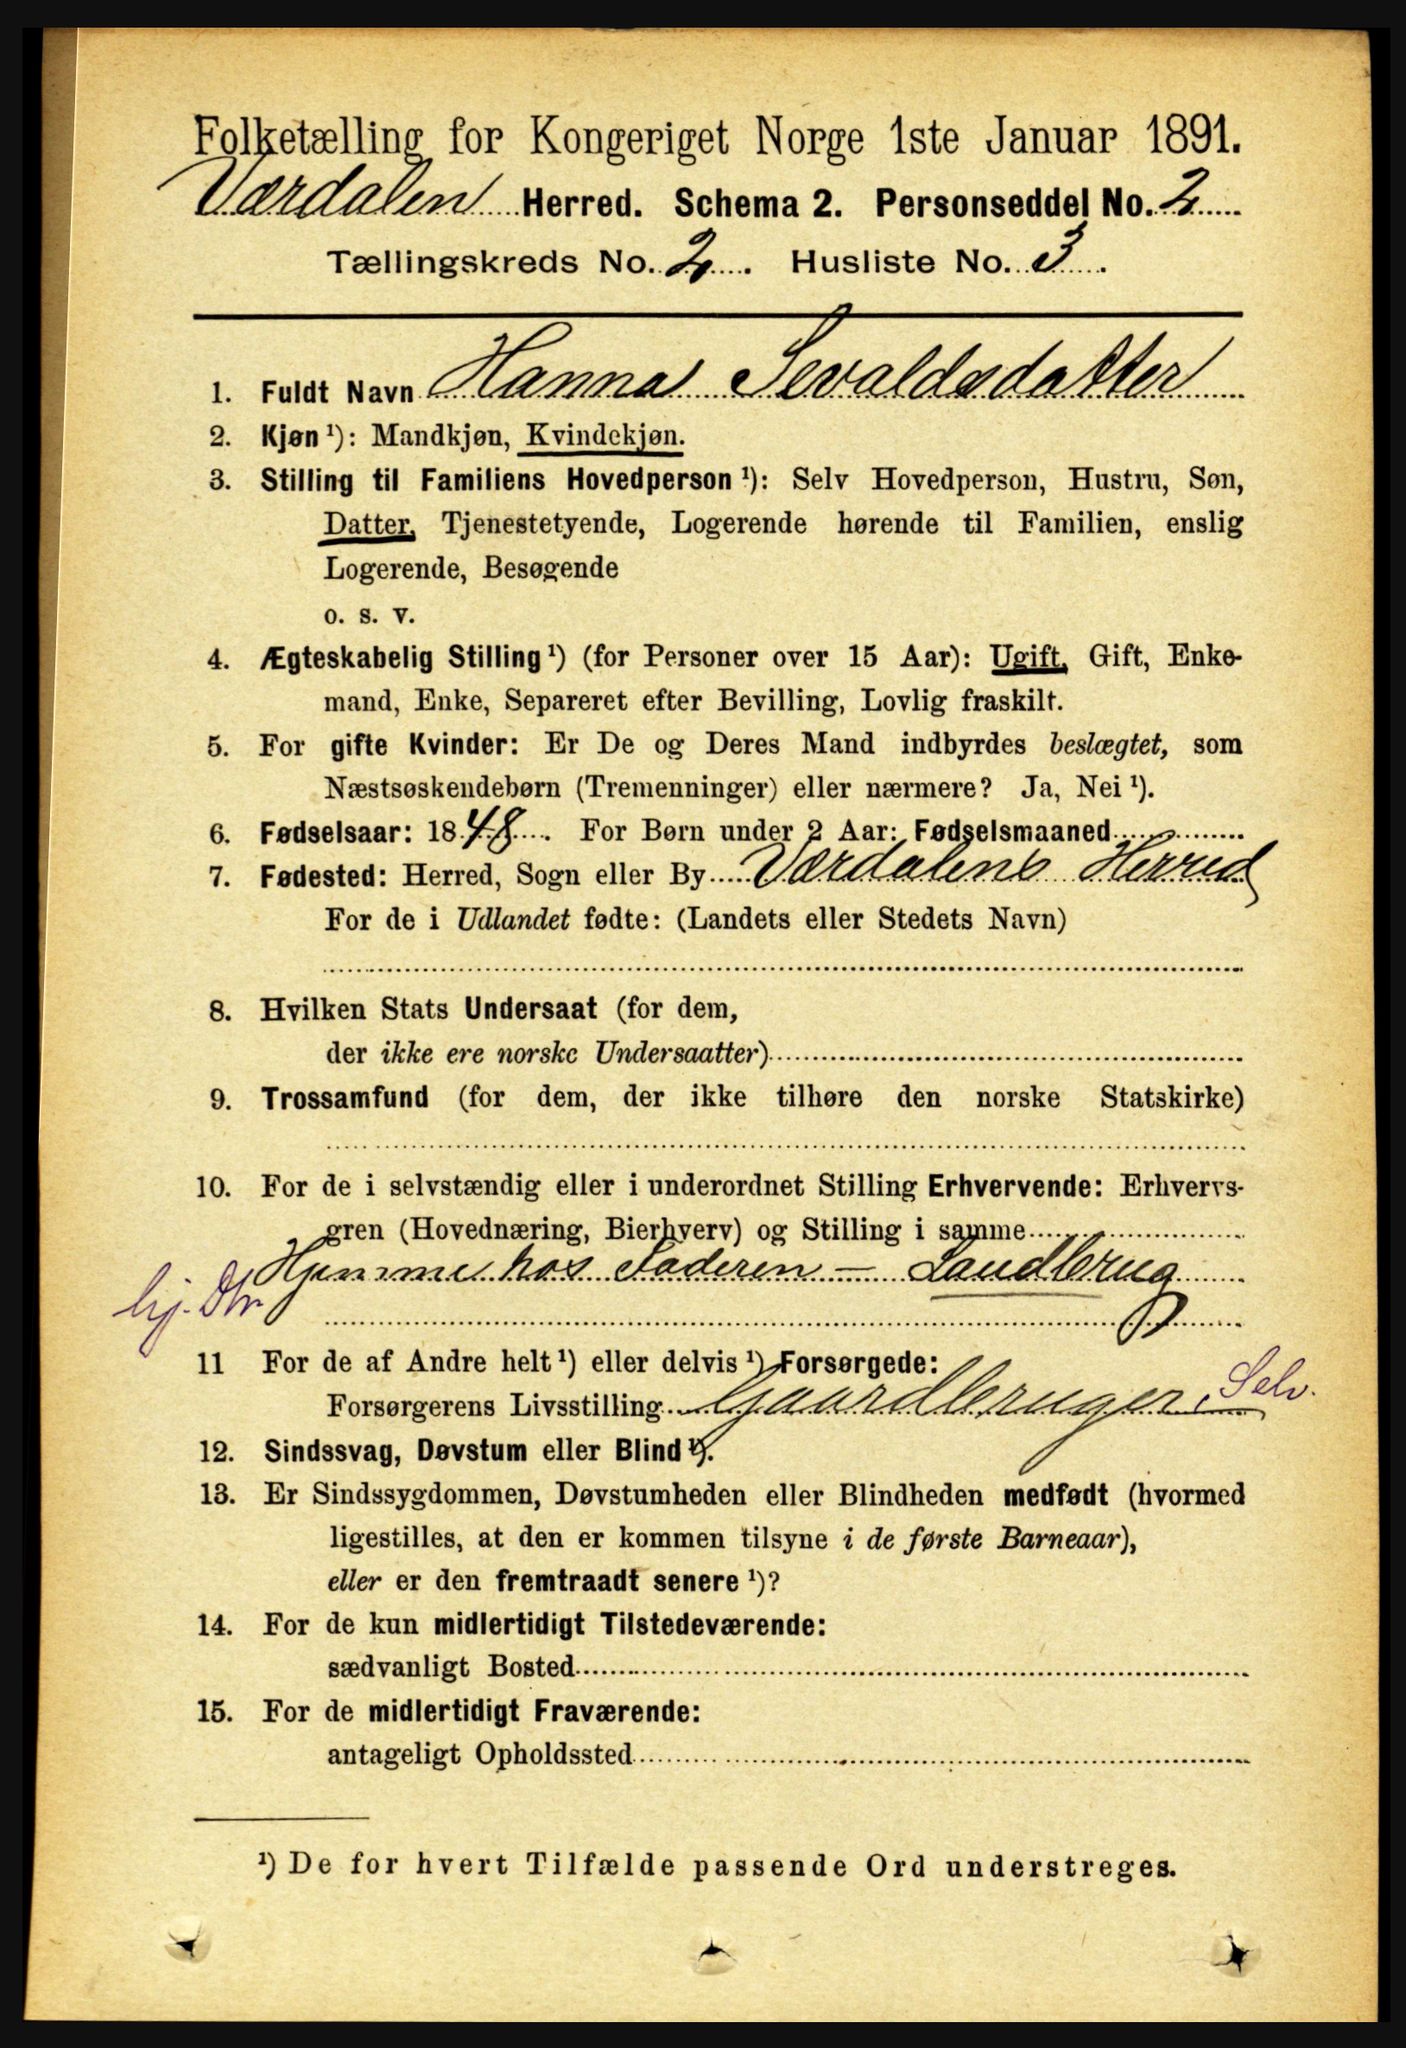 Folketælling for Kongeriget Norge 1ste Januar 1891.
Værdalen Herred. Schema 2. Personseddel No. 2
Tællingskreds No. 2. Husliste No. 3.
1. Fuldt Navn Hanna Sevaldsdatter
2. Kjøn ¹): Mandkjøn, Kvindekjøn.
3. Stilling til Familiens Hovedperson ¹): Selv Hovedperson, Hustru, Søn,
Datter, Tjenestetyende, Logerende hørende til Familien, enslig
Logerende, Besøgende
o. s. v.
4. Ægteskabelig Stilling ¹) (for Personer over 15 Aar): Ugift, Gift, Enke-
mand, Enke, Separeret efter Bevilling, Lovlig fraskilt.
5. For gifte Kvinder: Er De og Deres Mand indbyrdes beslægtet, som
Næstsøskendebørn (Tremenninger) eller nærmere? Ja, Nei ¹).
6. Fødselsaar: 1848. For Børn under 2 Aar: Fødselsmaaned
7. Fødested: Herred, Sogn eller By Værdalens Herred
For de i Udlandet fødte: (Landets eller Stedets Navn)
8. Hvilken Stats Undersaat (for dem,
der ikke ere norske Undersaatter)
9. Trossamfund (for dem, der ikke tilhøre den norske Statskirke)
10. For de i selvstændig eller i underordnet Stilling Erhvervende: Erhvervs-
gren (Hovednæring, Bierhverv) og Stilling i samme
Hjemme hos Faderen – Landbrug
hj. Dtr
11 For de af Andre helt ¹) eller delvis ¹) Forsørgede:
Forsørgerens Livsstilling Gaardbruger, Selv.
12. Sindssvag, Døvstum eller Blind ¹).
13. Er Sindssygdommen, Døvstumheden eller Blindheden medfødt (hvormed
ligestilles, at den er kommen tilsyne i de første Barneaar),
eller er den fremtraadt senere ¹)?
14. For de kun midlertidigt Tilstedeværende:
sædvanligt Bosted
15. For de midlertidigt Fraværende:
antageligt Opholdssted
¹) De for hvert Tilfælde passende Ord understreges.